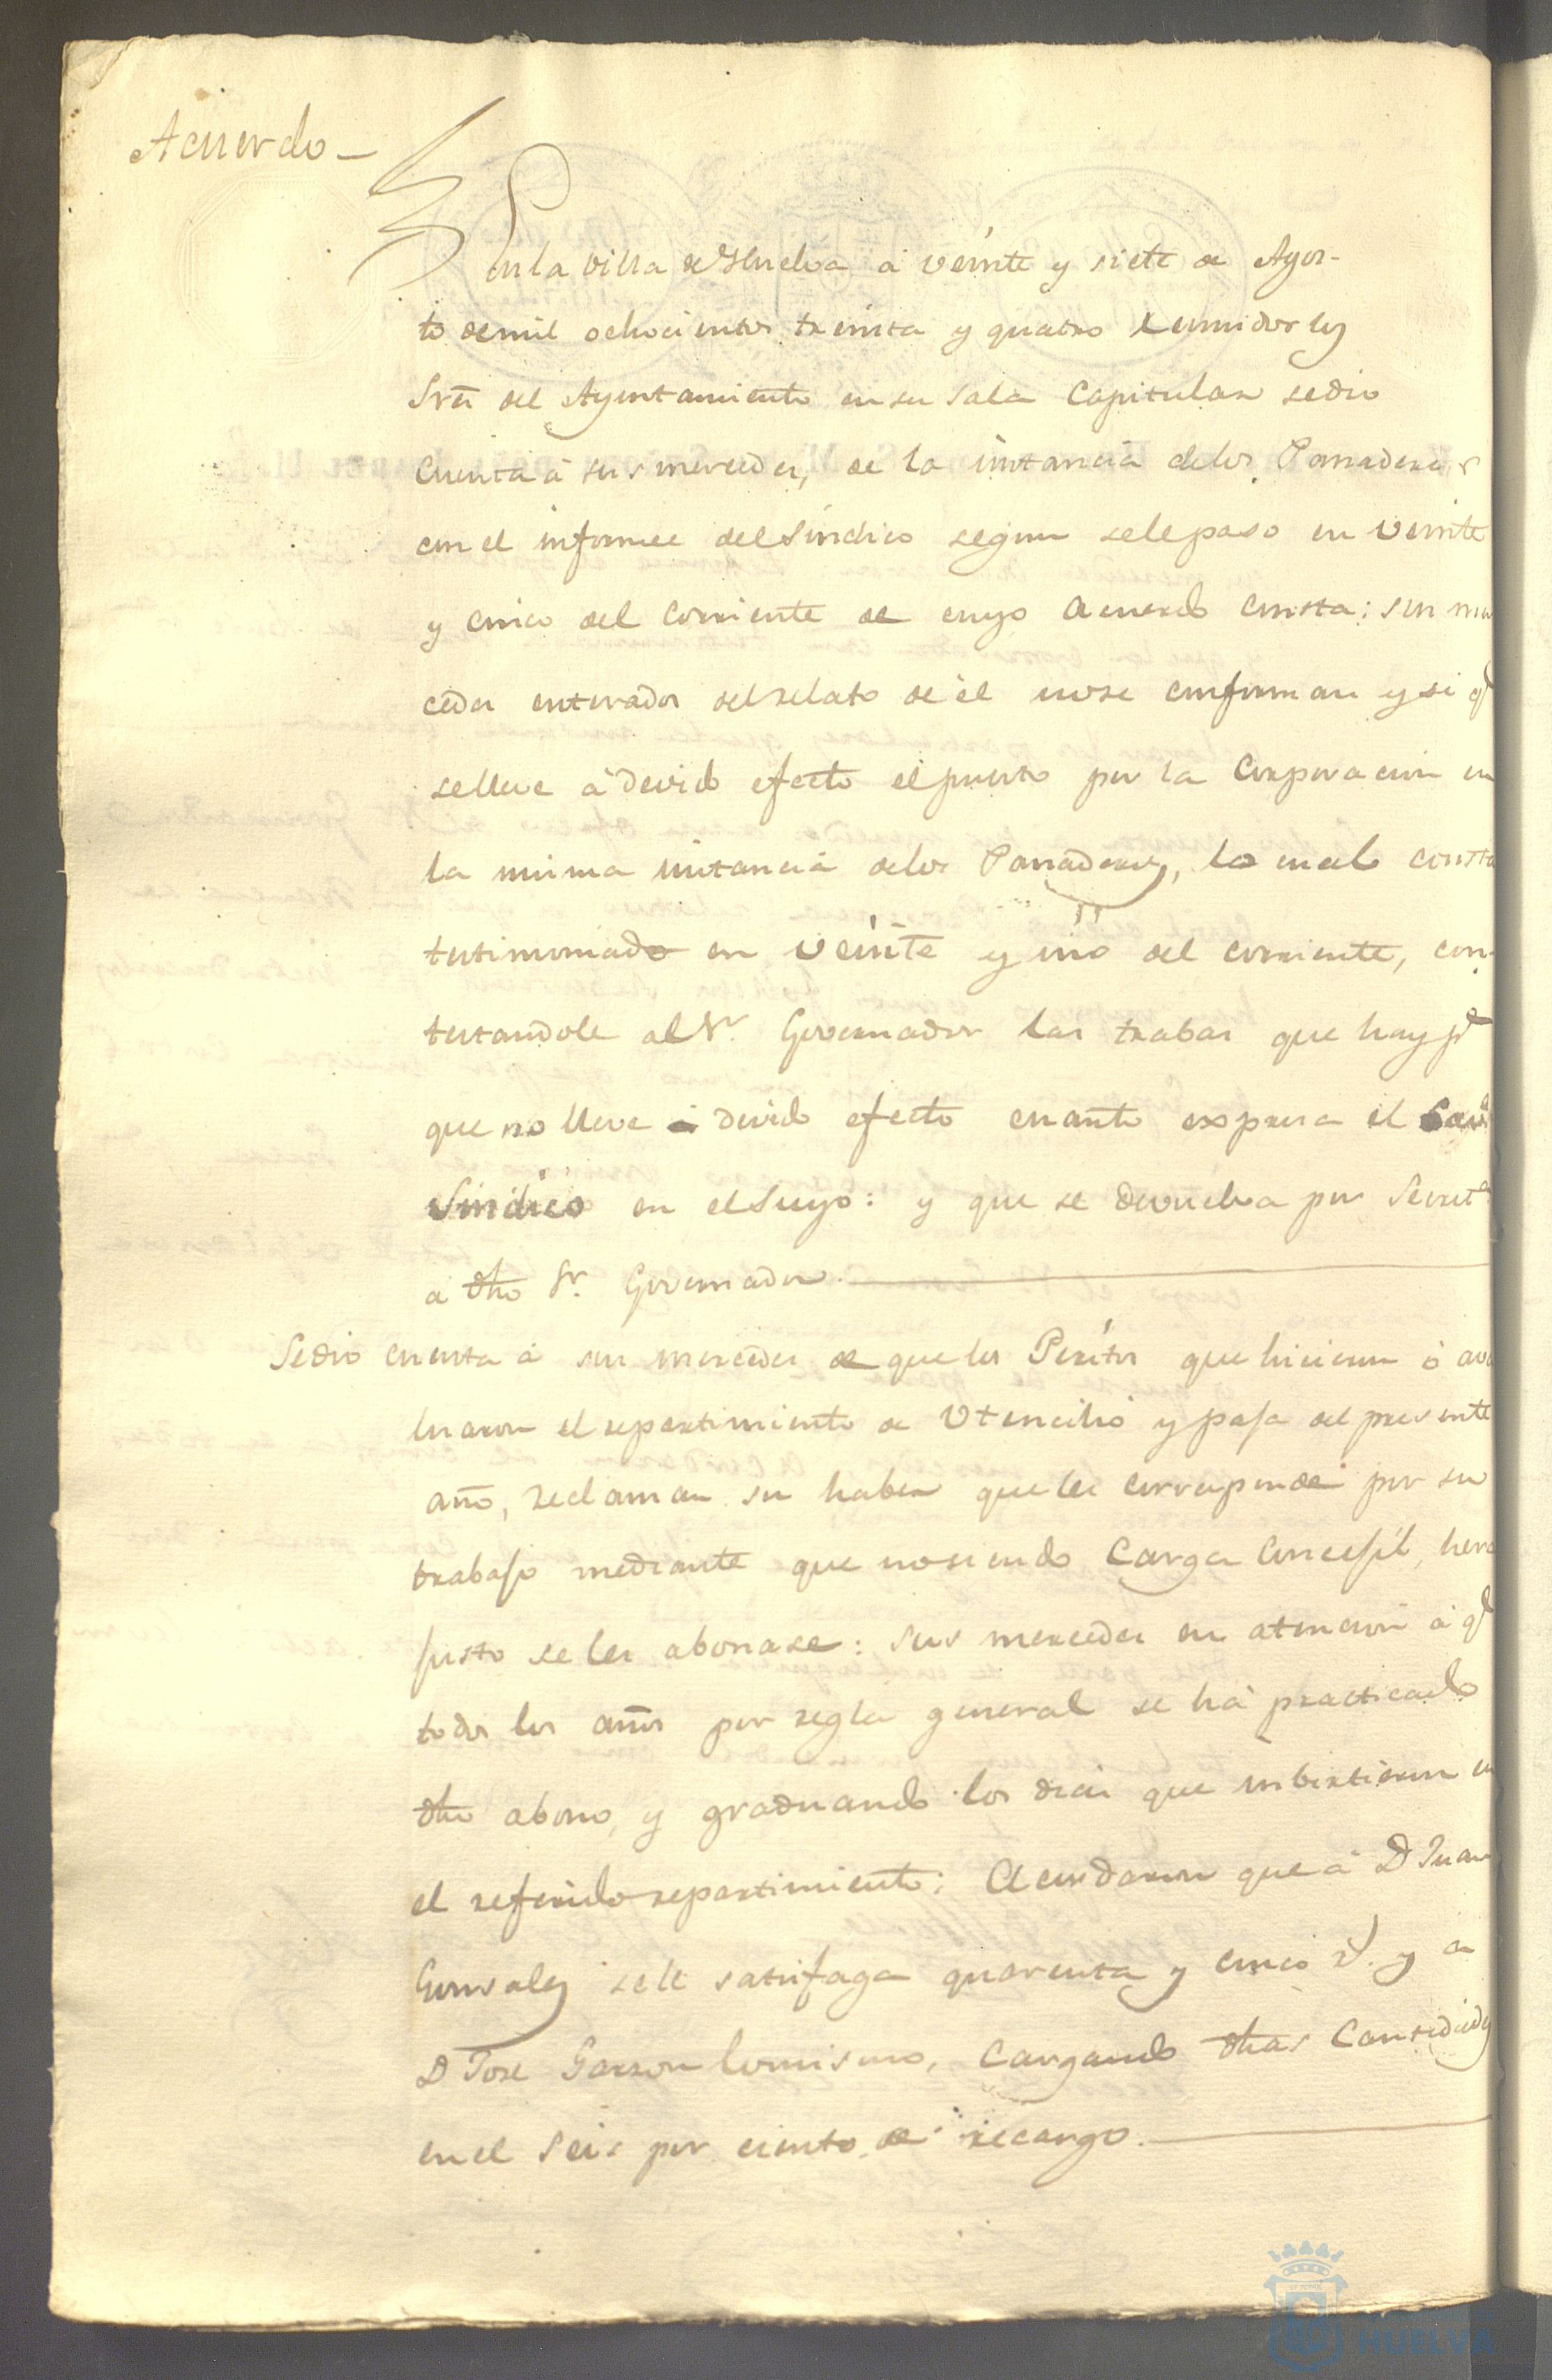 Acuerdo —
En la villa de Huelva a veinte y siete de Agos-
to de mil ochocientos treinta y quatro reunidos los
Srēs del Ayuntamiento en su Sala Capitular se dio
cuenta à sus mercedes, de la instancia de los Panaderos
con el informe del Sindico segun se le paso en veinte
y cinco del corriente de cuyo acuerdo consta: sus mer
cedes enterados del relato de èl no se conforman y si qᵉ
se lleve à devido efecto el puesto por la Corporacion en
la misma instancia de los Panaderos, lo cual consta
testimoniado en veinte y uno del corriente, con-
testandole al Sr. Governador las trabas que hay pᵃ
que no lleve à devido efecto cuanto expresa el
Sindico en el Suyo: y que se devuelva por Secretᵃ
a dho Sr. Governador.
Se dio cuenta à sus mercedes de que los Peritos que hicieron ò ava
luaron el repartimiento de Utencilio y paja del presente
año, reclaman su haber que les corresponde por su
trabajo mediante que no siendo Carga Concejil, hera
justo se les abonase: sus mercedes en atencion à qᵉ
todos los años por regla general se hà practicado
dho abono, y graduando los dias que imbirtieron en
el referido repartimiento: Acordaron que à D Juan
Gonsales se le satisfaga quarenta y cinco rˢ. y a
D Jose Garzon lo mismo, cargando dhas Cantidades
en el seis por ciento de recargo.
HUELVA